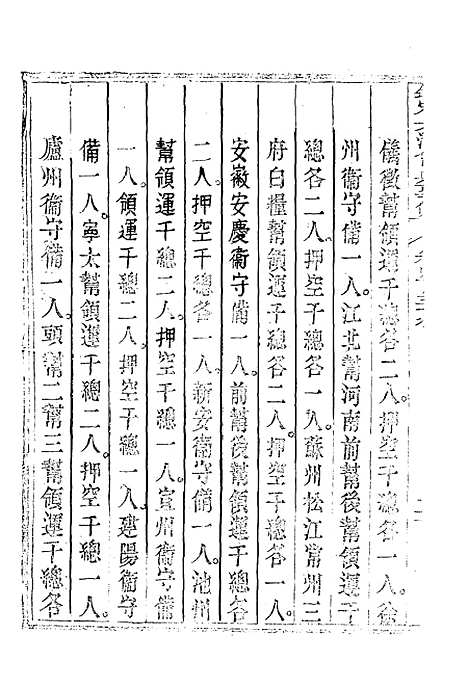 儀徵幫領運千總各二人。押空千總各一人。徐
州衞守備一人。江北幫河南前幫後幫領運千
總各二人。押空千總各一人。蘇州松江常州三
府白糧幫領運千總各二人。押空千總各一人。
安徽安慶衞守備一人。前幫後幫領運千總各
二人。押空千總各一人。新安衞守備一人。池州
幫領運千總二人。押空千總一人。宣州衞守備
一人。領運千總二人。押空千總一人。建陽衞守
備一人。寧太幫領運千總二人。押空千總一人。
廬州衞守備一人。頭幫二幫三幫領運千總各